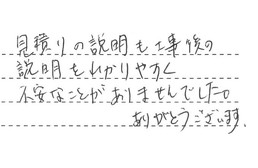 見積りの説明も工事後の
説明もわかりやすく
不安なことがありませんでした。
ありがとうございます.